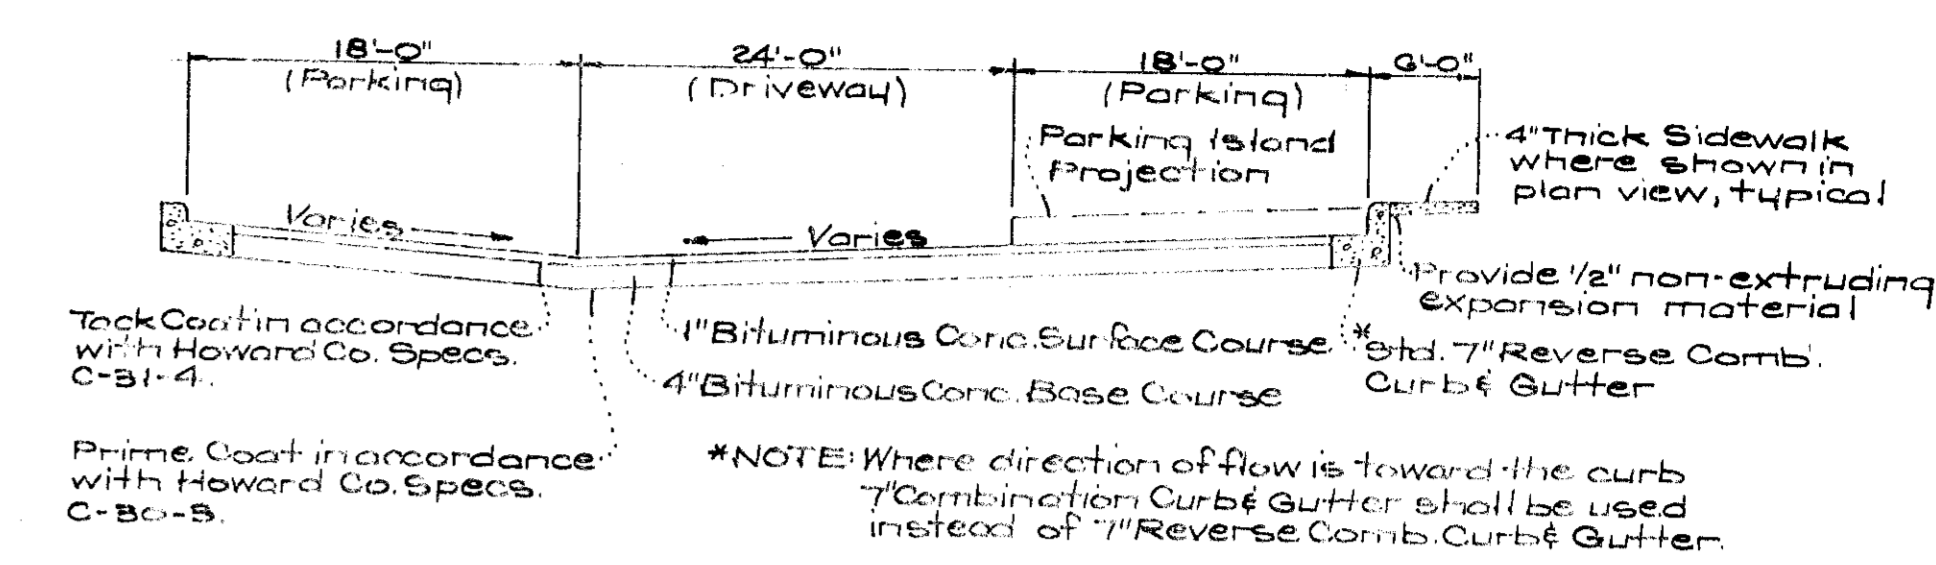 18'-0"
(Parking)
24'-0"
(Driveway)
18'-0"
(Parking)
6'-0"
Parking Island
Projection
4" Thick Sidewalk
where shown in
plan view, typical
Varies
Varies
Provide 1/2" non-extruding
expansion material
Tack Coat in accordance
with Howard Co. Specs.
C-31-4.
1" Bituminous Conc. Surface Course
* Std. 7" Reverse Comb.
Curb & Gutter
4" Bituminous Conc. Base Course
Prime Coat in accordance
with Howard Co. Specs.
C-30-3.
*NOTE: Where direction of flow is toward the curb
7" Combination Curb & Gutter shall be used
instead of 7" Reverse Comb. Curb & Gutter.